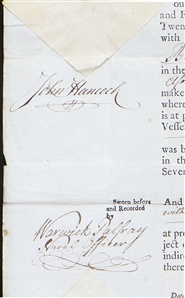 ou
and
Twen
with
John Hancock
make
where
is at p
Vesse
was b
in the
Seven
Sworn before
and Recorded
by
And
with
Warwick Palfray
Naval Officer
at pre
ject o
indire
there
Dat